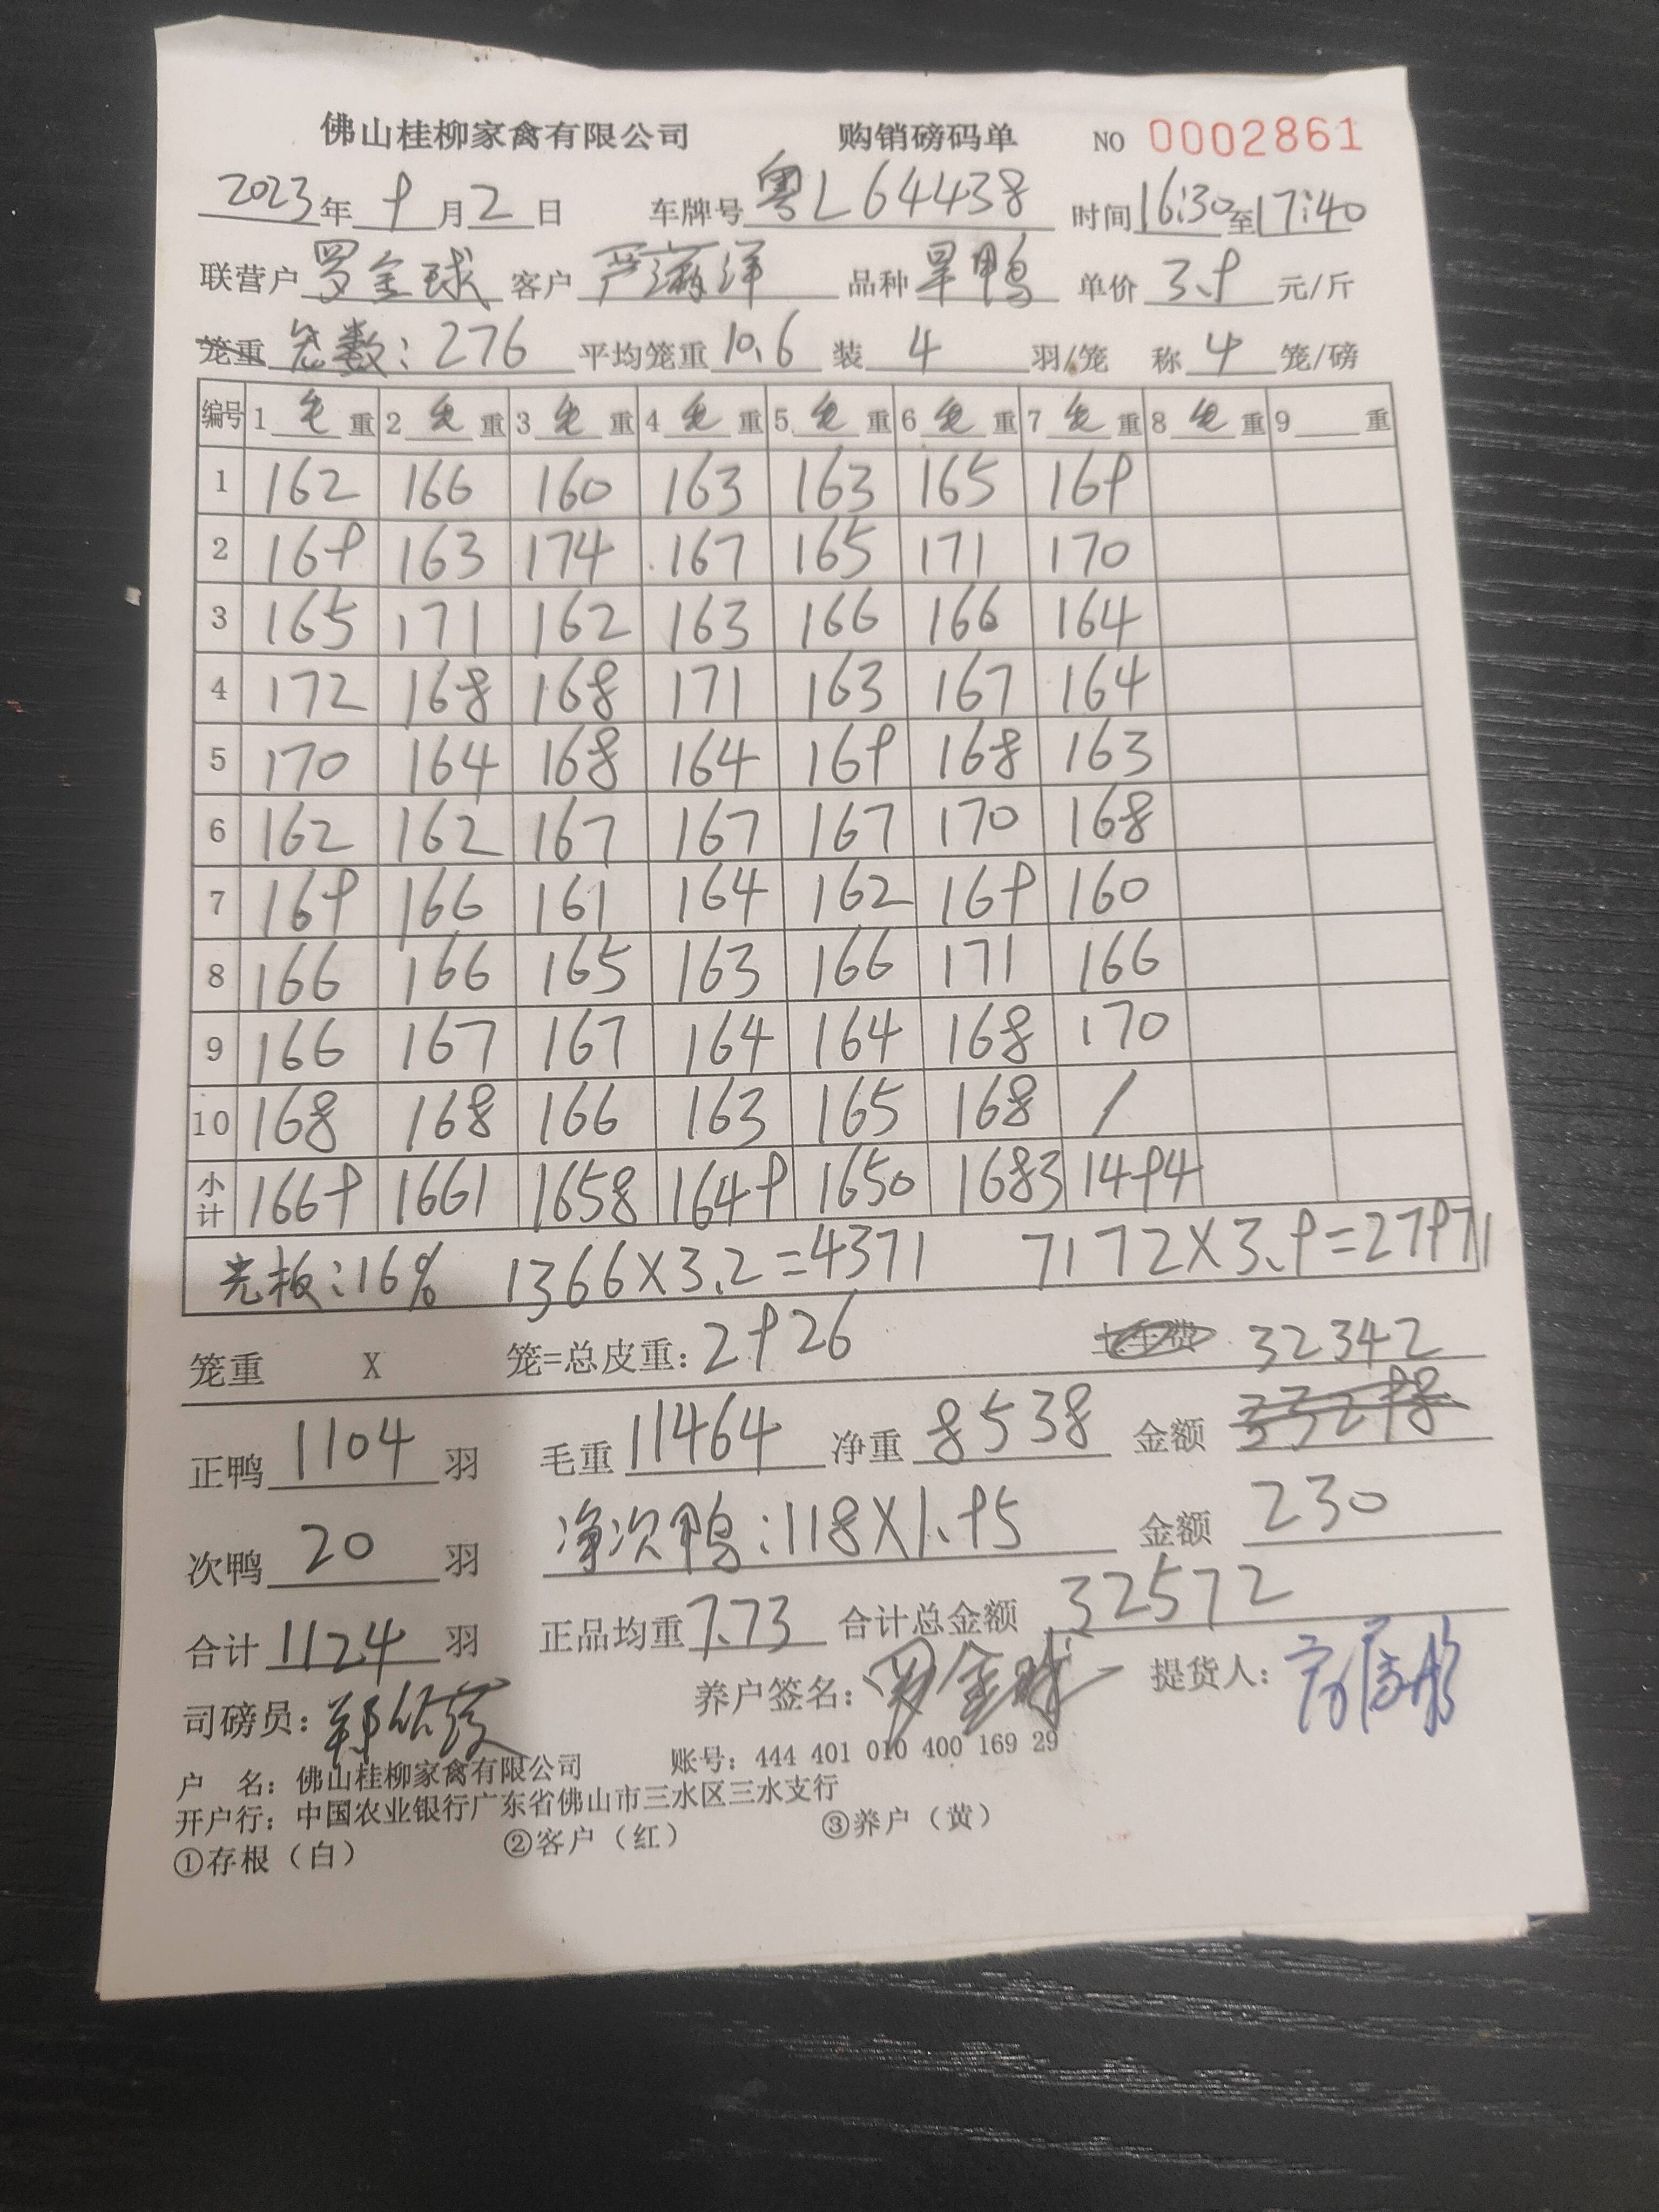 佛山桂柳家禽有限公司 购销磅码单 NO 0002861
2023年 9月2日 车牌号 粤L64438 时间16:30至17:40
联营户 罗金球 客户 严 洋 品种 旱鸭 单价 3.9 元/斤
笼重 笼数：276 平均笼重10.6 装 4 羽/笼 称 4 笼/磅
编号 1 毛 重 2 毛 重 3 毛 重 4 毛 重 5 毛 重 6 毛 重 7 毛 重 8 毛 重 9 重
1 162 166 160 163 163 165 169
2 169 163 174 167 165 171 170
3 165 171 162 163 166 166 164
4 172 168 168 171 163 167 164
5 170 164 168 164 169 168 163
6 162 162 167 167 167 170 168
7 169 166 161 164 162 169 160
8 166 166 165 163 166 171 166
9 166 167 167 164 164 168 170
10 168 168 166 163 165 168 /
小计 1669 1661 1658 1649 1650 1683 1494
光板：16% 1366X3.2=4371 7172X3.9=27971
笼重 X 笼=总皮重：2926 32342
正鸭 1104 羽 毛重 11464 净重 8538 金额 33298
次鸭 20 羽 净次鸭：118X1.95 金额 230
合计 1124 羽 正品均重 7.73 合计总金额 32572
司磅员： 养户签名：罗金球 提货人：
户 名：佛山桂柳家禽有限公司 账号：444 401 010 400 169 29
开户行：中国农业银行广东省佛山市三水区三水支行
①存根（白） ②客户（红） ③养户（黄）